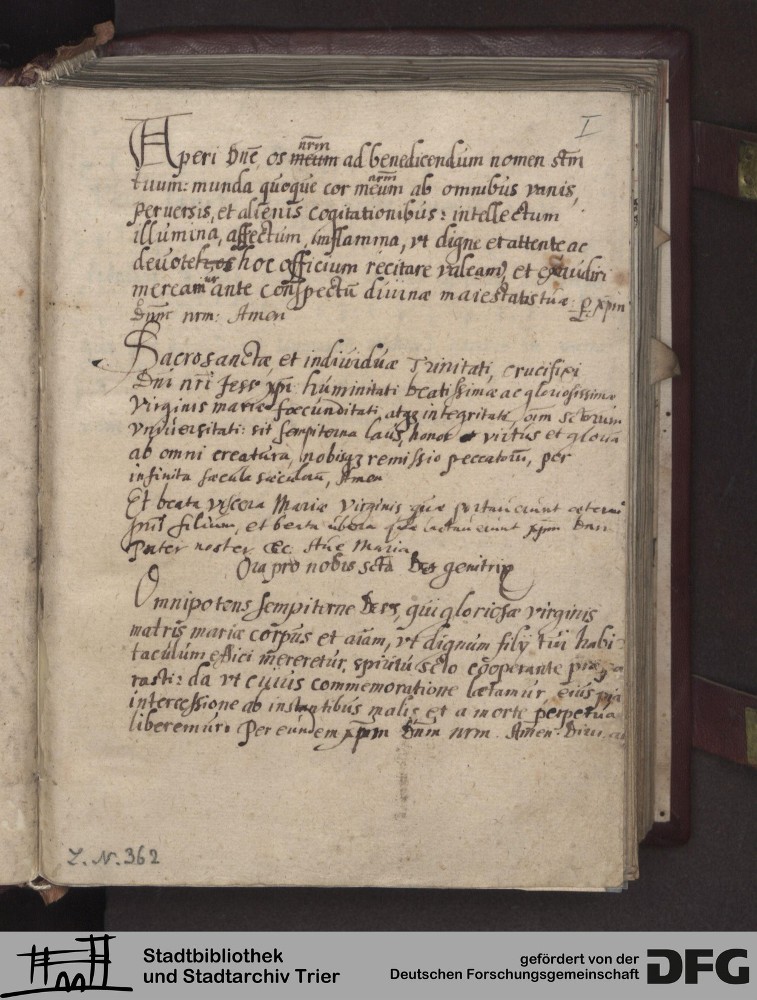 I
Aperi Dñe, os meum nrm̄ ad benedicendum nomen stm̄
tuum: munda quoque cor meum nrm̄ ab omnibus vanis,
perversis, et alienis cogitationibus: intellectum
illumina, affectum, inflamma, vt digne et attente ac
deuote hoc officium recitare valeam9, et exaudiri
mereamur ante conspectū diuinæ maiestatis tuæ. P xp̄m
Dnm̄ nrm: Amen
Sacrosanctæ et indiuiduæ Trinitati, crucifixi
Dni nr̄i Jesu xp̄i huminitati beatissimæ ac gloriosissimæ
Virginis mariæ fœcunditati, atqz integritati, oīm sctorum
vniuersitati: sit sempiterna laus, honor et virtus et gloria
ab omni creatura, nobisqz remissio peccatorū, per
infinita sæcula sæculorū, Amen
Et beata viscera Mariæ Virginis quæ portauerunt æterni
filium, et beata ubera quæ lactauerunt xp̄m Dnm
Pater noster &c. Aue Maria
Ora pro nobis sctā Dei genitrix
Omnipotens sempiterne Deus, qui gloriosæ virginis
matris mariæ corpus et aīam, vt dignum filij tui habi-
taculum effici mereretur, spiritu scto cōoperante præpa
rasti: da vt cuius commemoratione lætamur, eius pia
intercessione ab instantibus malis et a morte perpetua
liberemur. Per eundem xp̄m Dnm nrm. Amen.
Z. N. 362
Stadtbibliothek
und Stadtarchiv Trier
gefördert von der
Deutschen Forschungsgemeinschaft
DFG